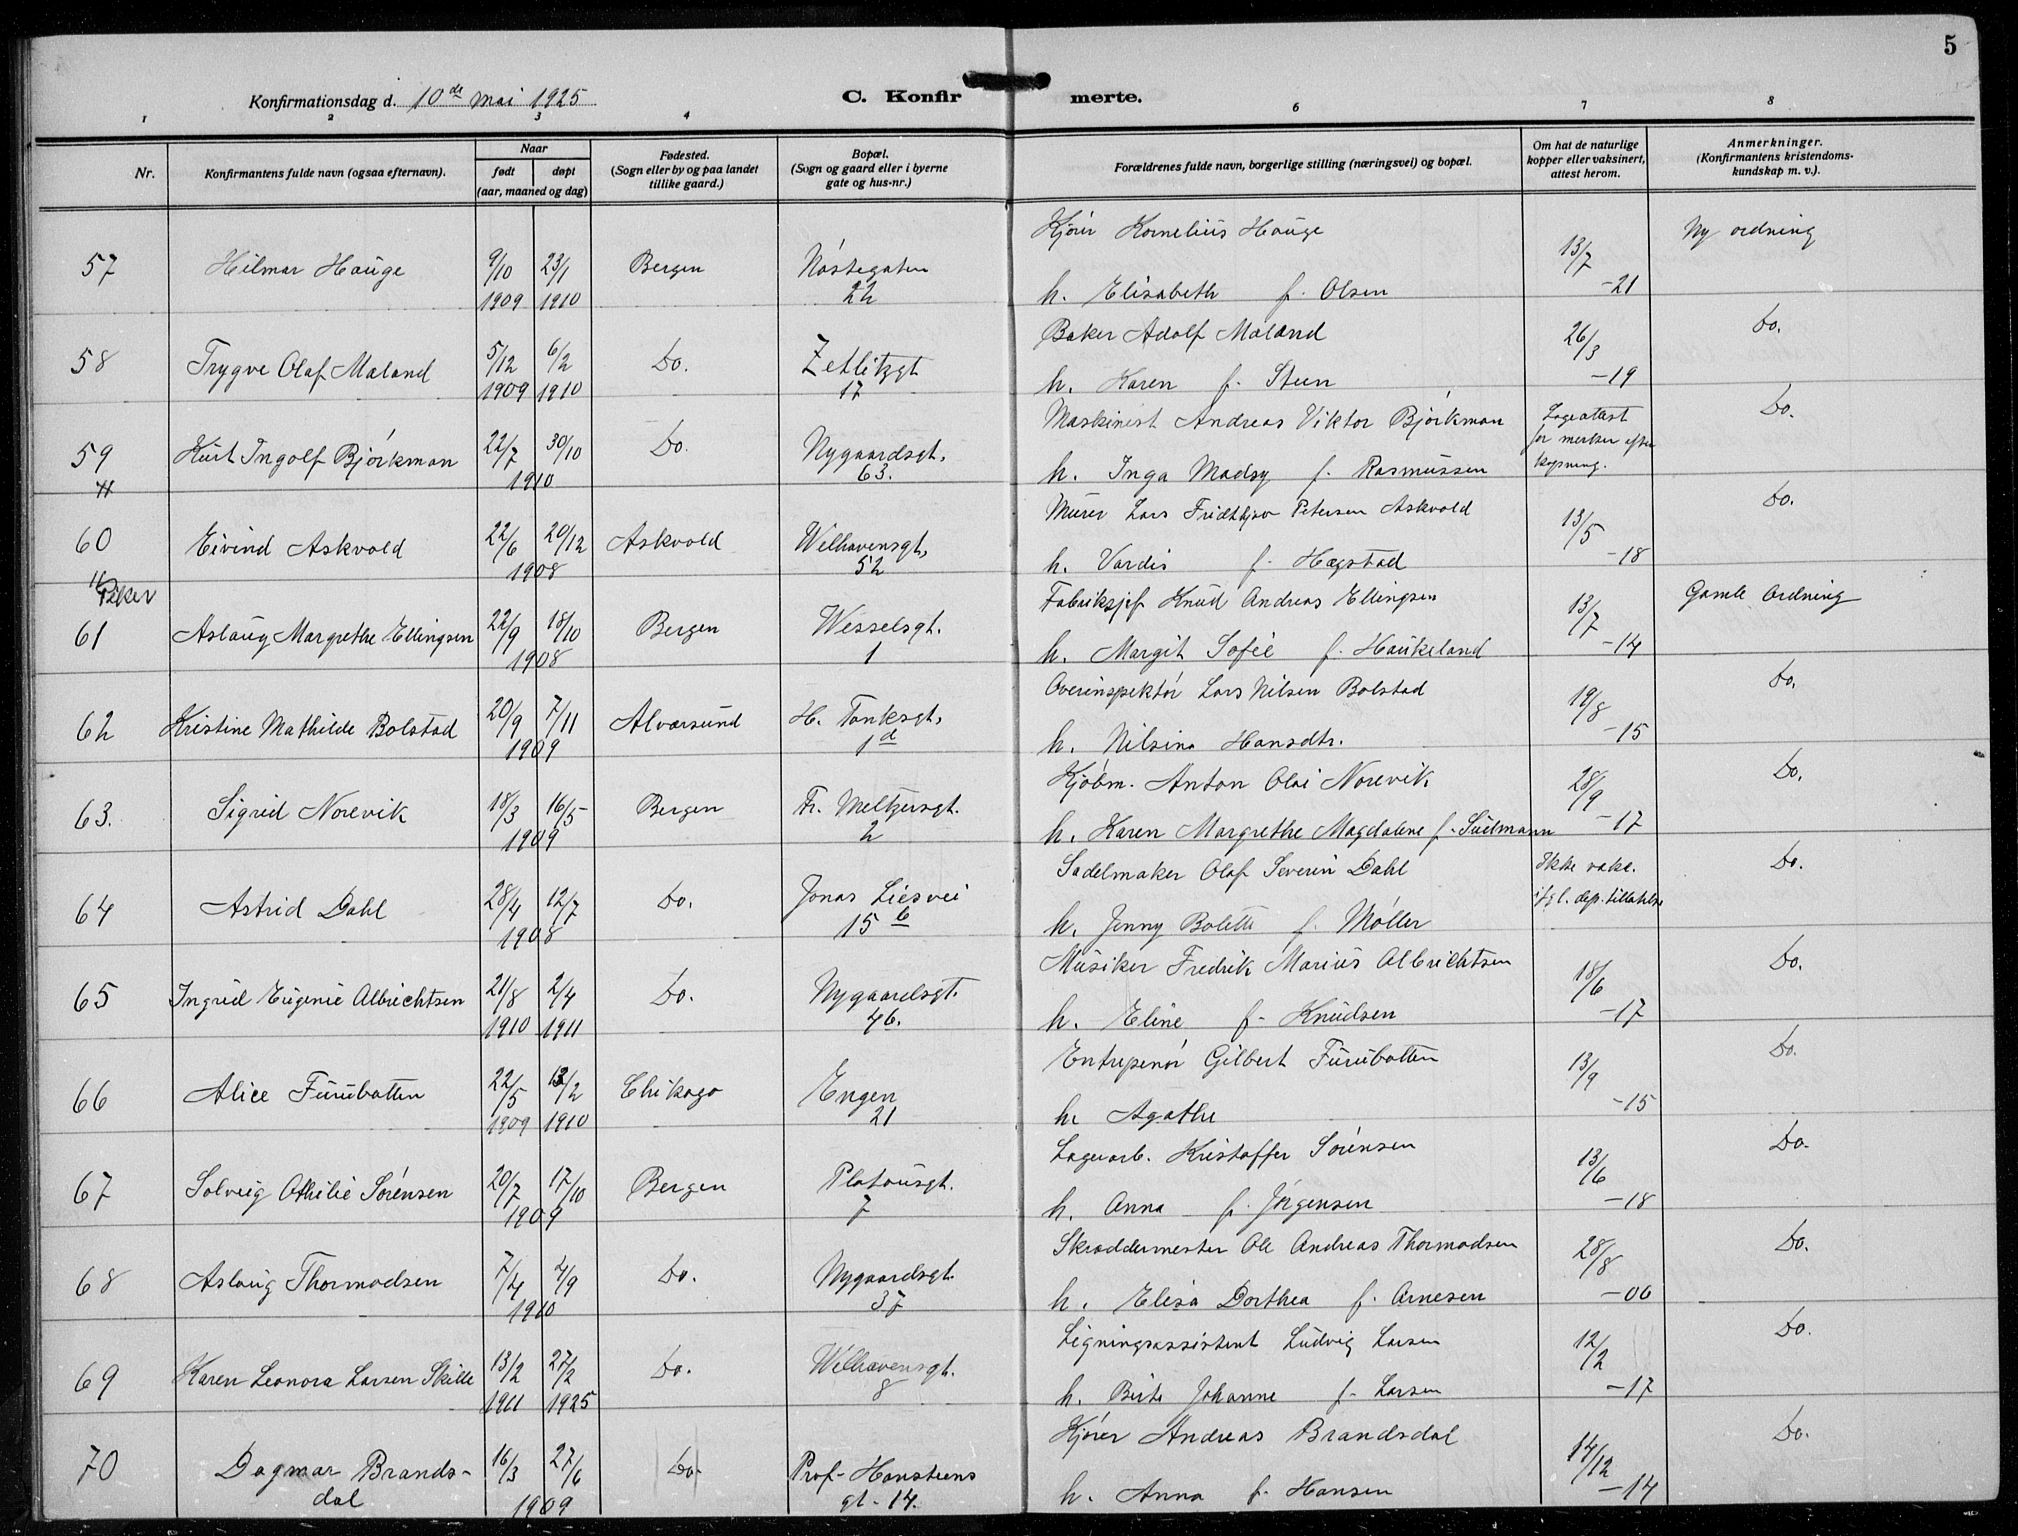 5
Konfirmationsdag d. 10de mai 1925
C. Konfirmerte.
1 2 3 4 6 7 8
Nr.
Konfirmantens fulde navn (ogsaa efternavn).
Naar
født døpt
(aar, maaned og dag)
Fødested.
(Sogn eller by og paa landet
tillike gaard.)
Bopæl.
(Sogn og gaard eller i byerne
gate og hus-nr.)
Forældrenes fulde navn, borgerlige stilling (næringsvei) og bopæl.
Om hat de naturlige
kopper eller vaksinert,
attest herom.
Anmerkninger.
(Konfirmantens kristendoms-
kundskap m. v.).
Kjører Kornelius Hauge Ny ordning
57 Hilmar Hauge 9/10 23/1 Bergen Nøstegaten 13/7
1909 1910 22 h. Elisabeth f. Olsen -21
Baker Adolf Maland Do.
58 Trygve Olaf Maland 5/12 6/2 Do. Zetlitzgt 26/3
1909 1910 17 h. Karen f. Steen -19
Maskinist Andreas Viktor Bjørkman Lægeattest Do.
59 Kurt Ingolf Bjørkman 22/7 30/10 Do. Nygaardsgt. for merker efter
1910 63. h. Inga Madsy f. Rasmussen kopning.
Murer Lars Fridthjov Petersen Askvold Do.
60 Eivind Askvold 22/6 20/12 Askvold Welhavensgt, 13/5
1908 52 h. Vardis f. Hægstad -18
Piker
Fabriksjef Knud Andreas Ellingsen Gamle Ordning
61 Aslaug Margrethe Ellingsen 22/9 18/10 Bergen Wesselsgt. 13/7
1908 1 h. Margit Sofie f. Haukeland -14
Overinspektør Lars Nilsen Bolstad Do.
62 Kristine Mathilde Bolstad 20/9 7/11 Alversund H. Tanksgt, 19/8
1909 1d h. Nilsine Hansdtr. -15
Kjøbm. Anton Olai Norevik Do.
63. Sigrid Norevik 18/3 16/5 Bergen Fr. Meltzersgt. 28/9
1909 2 h. Karen Margrethe Magdalene f. Suhmann -17
Sadelmaker Olaf Severin Dahl Ikke vaks. Do.
64 Astrid Dahl 28/4 12/7 Do. Jonas Liesvei ifgl. dep. tillatelse
1908 15 b h. Jenny Bolette f. Møller
Musiker Fredrik Marius Albrichtsen Do.
65 Ingrid Eugenie Albrichtsen 21/8 2/4 Do. Nygaardsgt. 18/6
1910 1911 46. h. Eline f. Knudsen -17
Entrepenør Gilbert Furubotten Do.
66 Alice Furubotten 22/5 13/2 Chikago Engen 13/9
1909 1910 21 h. Agathe -15
Lagerarb. Kristoffer Sørensen Do.
67 Solveig Othilie Sørensen 20/7 17/10 Bergen Platousgt. 13/6
1909 7 h. Anna f. Jørgensen -18
Skræddermester Ole Andreas Thormodsen Do.
68 Aslaug Thormodsen 7/4 4/9 Do. Nygaardsgt. 28/8
1910 37 h. Elisa Dorthea f. Arnesen -06
Ligningsassistent Ludvig Larsen Do.
69 Karen Leonora Larsen Skille 13/2 27/2 Do. Welhavensgt. 12/2
1911 1925 8 h. Birte Johanne f. Larsen -17
Kjører Andreas Brandsdal Do.
70 Dagmar Brands- 16/3 27/6 Do. Prof. Hansteens 14/12
dal 1909 gt. 14. h. Anna f. Hansen -14